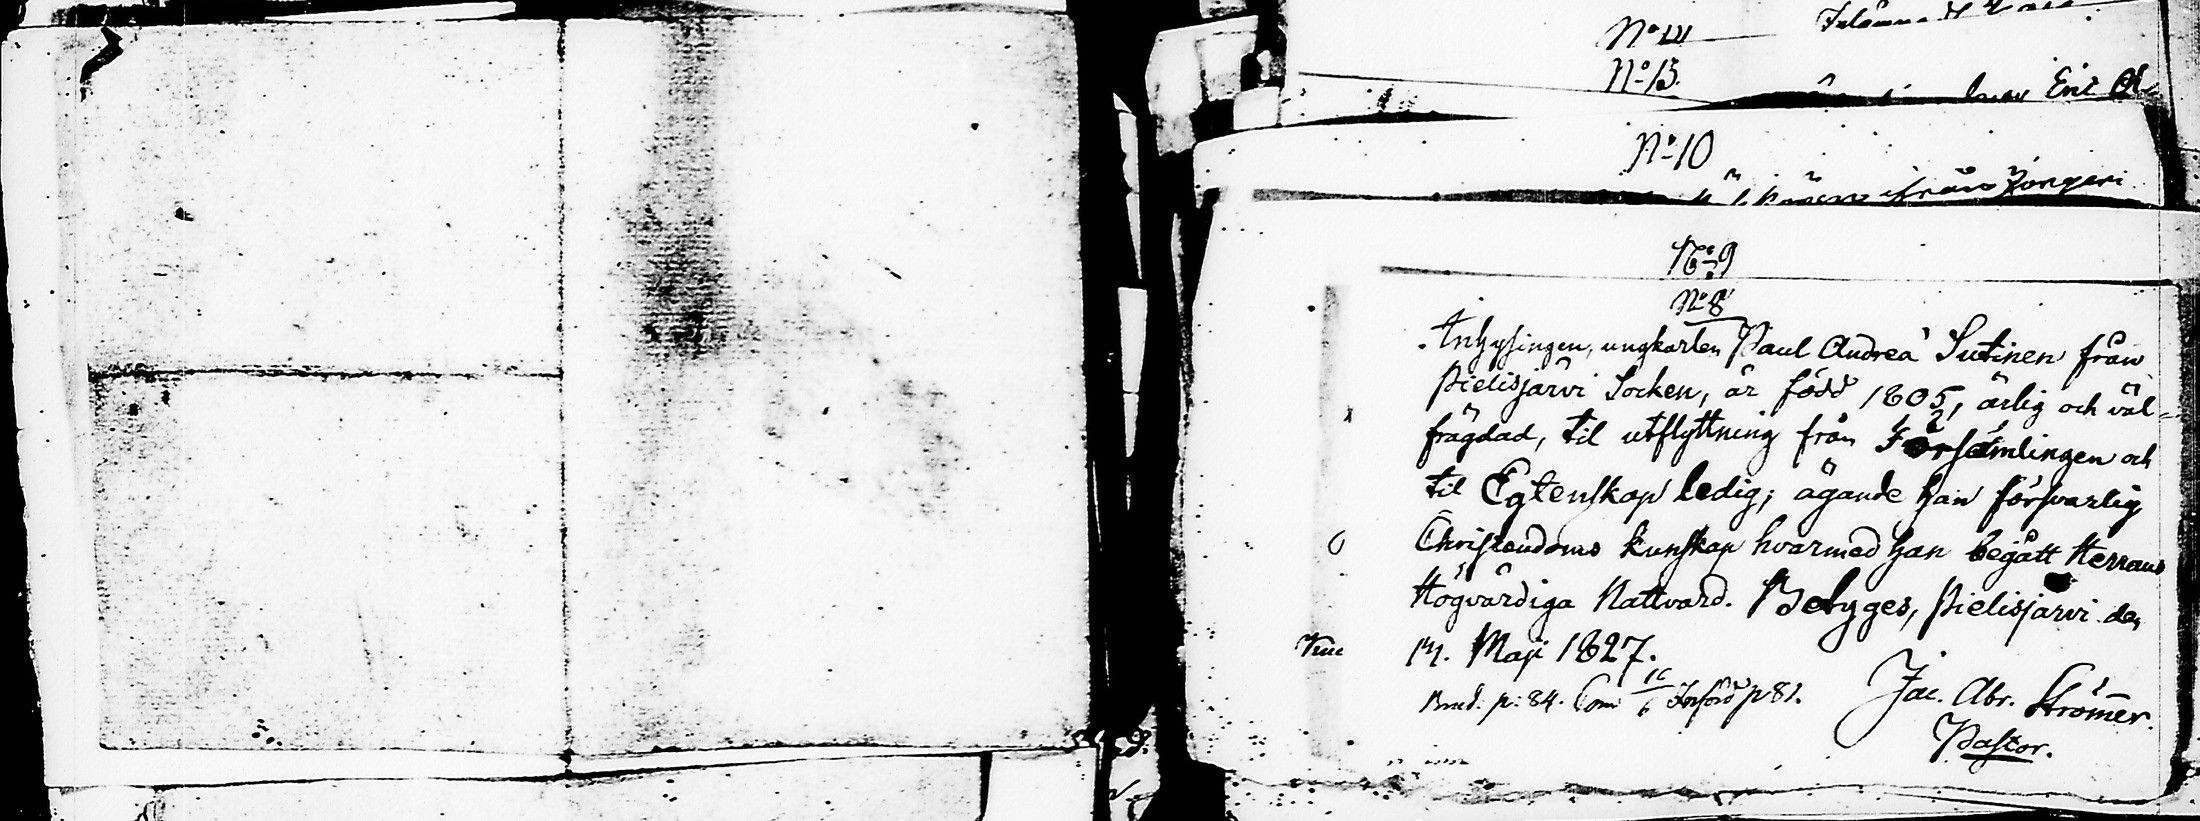 N:o 14
N:o 13.
Eric
N:o 10
från Jongeri
N:o 9
N:o 8
Inhysingen, ungkarlen Paul Andreä Sutinen från
Pielisjärvi Socken, är född 1805, ärlig och väl-
frägdad, til utflyttning från Församlingen och
til Egtenskap ledig; ägande han försvarlig
Christendoms kunskap hvarmed han begått Herrans
Högvärdiga Nattvard. Betyges, Pielisjärvi den
14. Maji 1827.
p: 84. Com 16/6 Införd p 81.
Jac. Abr. Strömer.
Pastor.